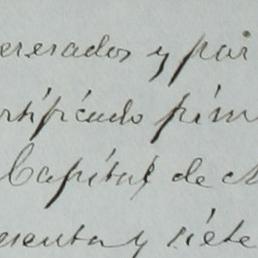 eresados y par
rtificado firm
Capital de M
esenta y siete